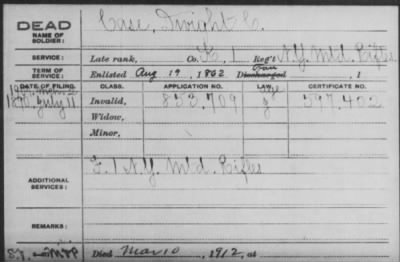 DEAD
NAME OF SOLDIER: Case, Dwight C.
SERVICE: Late rank, Co. G, 1 Reg't N.Y. Mtd. Rifles
TERM OF SERVICE: Enlisted Aug 19, 1862 Discharged , 1
DATE OF FILING. CLASS. APPLICATION NO. LAW. CERTIFICATE NO.
1890, July 11 Invalid, 853,709 597,402
Widow,
Minor,
ADDITIONAL SERVICES: G. 1 N.Y. Mtd. Rifles
REMARKS:
Died Mar 10, 1912, at